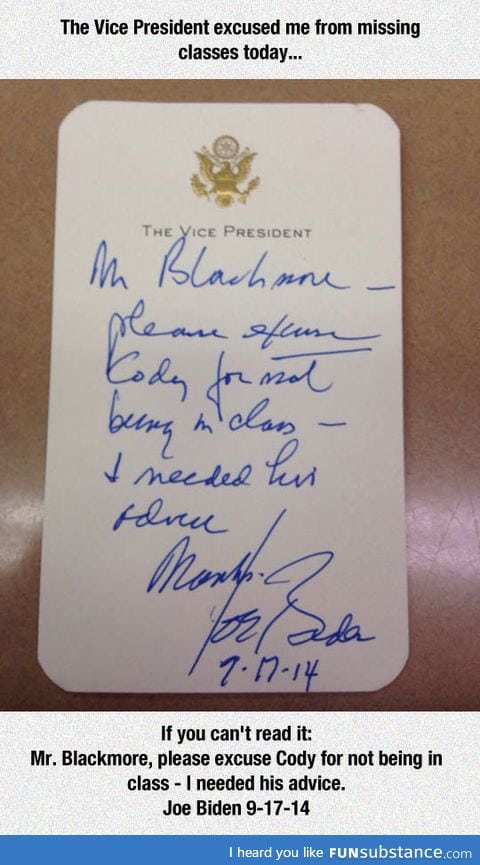 The Vice President excused me from missing
classes today...
THE VICE PRESIDENT
Mr Blackmore –
please excuse
Cody for not
being in class –
I needed his
advice
Thanks.
Joe Biden
9-17-14
If you can't read it:
Mr. Blackmore, please excuse Cody for not being in
class - I needed his advice.
Joe Biden 9-17-14
I heard you like FUNsubstance.com